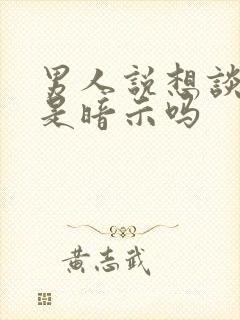 男人説想談
是暗示吗
黄志武